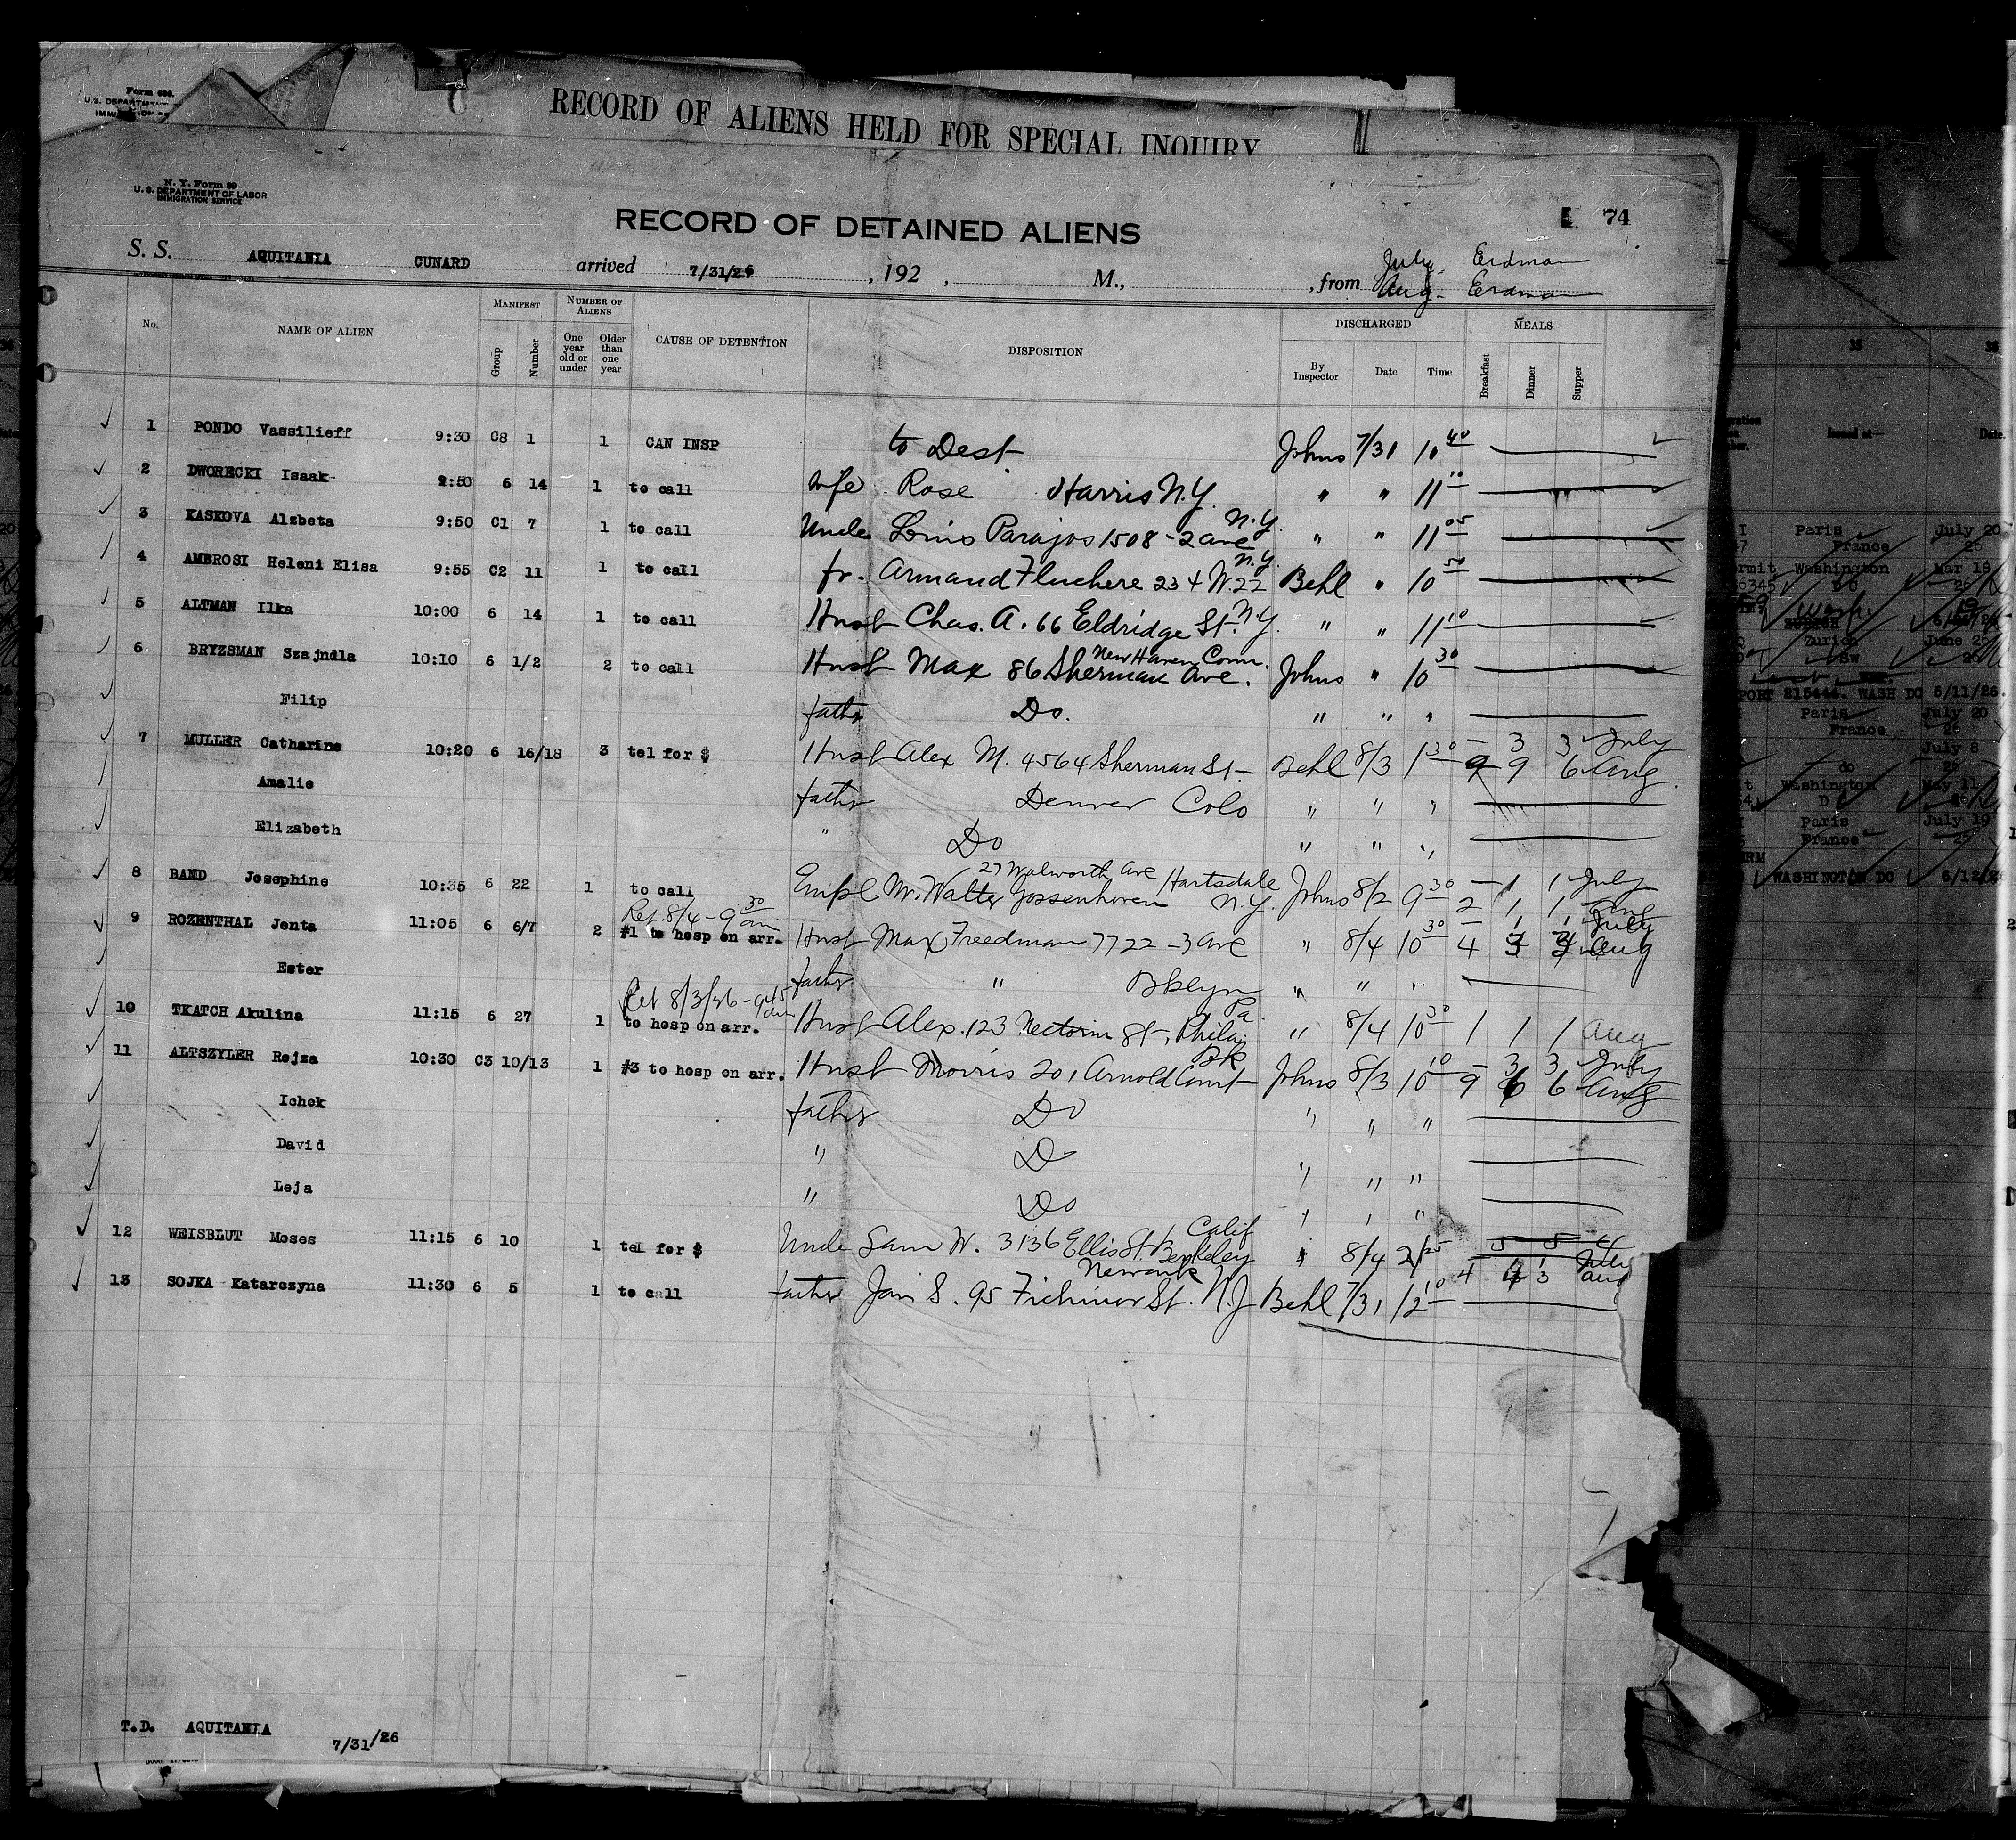 Form 686.
U.S. DEPARTMENT
RECORD OF ALIENS HELD FOR SPECIAL INQUIRY
N. Y. Form 89
U. S. DEPARTMENT OF LABOR
IMMIGRATION SERVICE
RECORD OF DETAINED ALIENS
74
11
S. S. AQUITANIA CUNARD arrived 7/31/26, 192 , M., , from July- Erdman
Aug- Erdman
No. NAME OF ALIEN MANIFEST Group Number NUMBER OF ALIENS One year old or under Older than one year CAUSE OF DETENTION DISPOSITION DISCHARGED By Inspector Date Time MEALS Breakfast Dinner Supper
1 PONDO Vassilieff 9:30 C8 1 1 CAN INSP to Dest Johns 7/31 10 40
2 DWORECKI Isaak 9:50 6 14 1 to call wife Rose Harris N.Y. " " 11 10
3 KASKOVA Alzbeta 9:50 C1 7 1 to call Uncle Louis Parajos 1508-2 ave N.Y. " " 11 05
4 AMBROSI Heleni Elisa 9:55 C2 11 1 to call fr. Armand Fluchere 234 W.22 N.Y. Behl " 10 50
5 ALTMAN Ilka 10:00 6 14 1 to call Husb Chas. A. 66 Eldridge St. N.Y. " " 11 10
6 BRYZSMAN Szajndla 10:10 6 1/2 2 to call Husb Max 86 Sherman Ave. New Haven Conn. Johns " 10 30
Filip father Do. " " "
7 MULLER Catharine 10:20 6 16/18 3 tel for $ Husb Alex M. 4564 Sherman St- Behl 8/3 1 30 - 3 3 July
9 9 6 Aug
Amalie father Denver Colo " " "
Elizabeth " Do " " "
8 BAND Josephine 10:35 6 22 1 to call Empl Mr. Walter Gossenhoven 27 Walworth Ave Hartsdale N.Y. Johns 8/2 9 30 - 1 1 July
2 1 1 Aug
9 ROZENTHAL Jenta 11:05 6 6/7 2 Ret. 8/4-9 30 am #1 to hosp on arr. Husb Max Freedman 7722-3 ave " 8/4 10 30 - 1 1 July
4 3 Aug
Ester father " Bklyn " " "
10 TKATCH Akulina 11:15 6 27 1 Ret 8/3/26 - 9 45 am to hosp on arr. Husb Alex. 123 St., Phila Pa " 8/4 10 30 1 1 1 Aug
11 ALTSZYLER Rejza 10:30 C3 10/13 1 #3 to hosp on arr. Husb Morris 201 Arnold Court Bk Johns 8/3 10 10 - 3 3 July
9 6 6 Aug
Ichok father Do " " "
David " Do " " "
Leja " Do " " "
12 WEISBLUT Moses 11:15 6 10 1 tel for $ Uncle Sam W. 3136 Ellis St. Berkeley Calif " 8/4 2 25
July
4 3 Aug
13 SOJKA Katarczyna 11:30 6 5 1 to call father Jan S. 95 St. Newark N.J Behl 7/31 12 10
T.D. AQUITANIA 7/31/26
35 36
Issued at— Date.
Paris July 20
France 26
Washington Mar 18
D C 26
Zurich June 26
SW
PORT 215444. WASH DC 5/11/26.
Paris July 20
France 26
July 8
do 26
Washington May 11
D C
Paris July 19
France 26
WASHINGTON DC 6/12/26